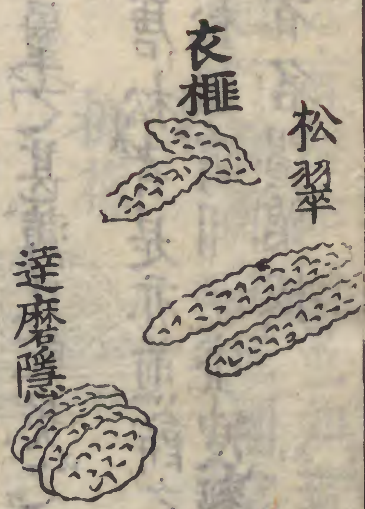 松翠
衣榧
達磨隠